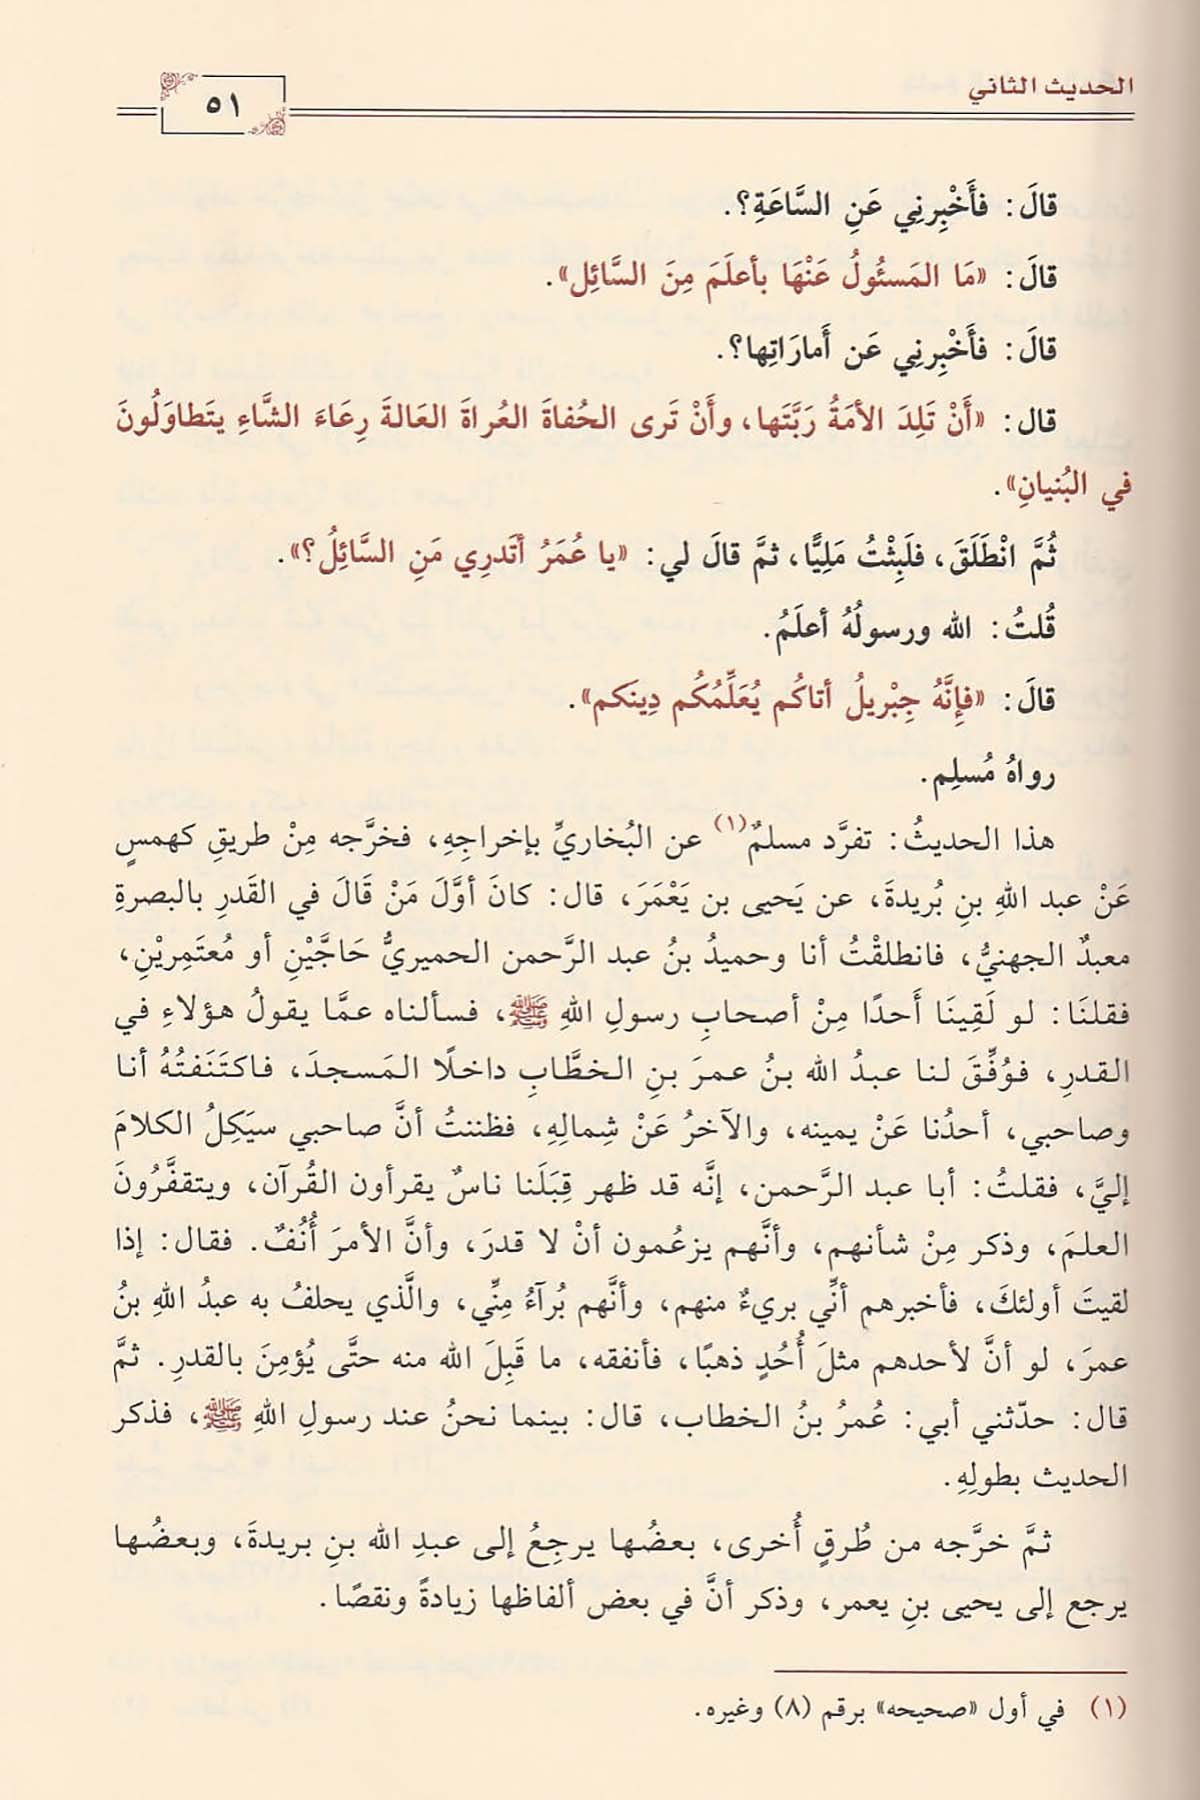 الحديث الثاني
٥١
قالَ: فأَخْبِرنِي عَنِ السَّاعَةِ؟.
قالَ: «مَا المَسئُولُ عَنْهَا بأعلَمَ مِنَ السَّائِل».
قالَ: فأَخْبِرنِي عَن أَمارَاتِها؟.
قال: «أَنْ تَلِدَ الأمَةُ رَبَّتَها، وأَنْ تَرى الحُفاةَ العُراةَ العَالةَ رِعَاءَ الشَّاءِ يتَطاوَلُونَ
في البُنيانِ».
ثُمَّ انْطَلَقَ، فَلَبِثْتُ مَلِيًّا، ثمَّ قالَ لي: «يا عُمَرُ أتَدرِي مَنِ السَّائِلُ؟».
قُلتُ: الله ورسولُهُ أعلَمُ.
قالَ: «فإِنَّهُ جِبْريلُ أتاكُم يُعَلِّمُكُم دِينَكم».
رواهُ مُسلِم.
هذا الحديثُ: تفرَّد مسلمٌ(١) عن البُخاريِّ بإخراجِهِ، فخرَّجه مِنْ طريقِ كهمسٍ
عَنْ عبد اللهِ بنِ بُريدةَ، عن يَحيى بن يَعْمَرَ، قال: كانَ أوَّلَ مَنْ قَالَ في القَدرِ بالبصرةِ
معبدٌ الجهنيُّ، فانطلقْتُ أنا وحميدُ بنُ عبد الرَّحمن الحميريُّ حَاجَّيْنِ أو مُعتَمِريْنِ،
فقلنَا: لو لَقِينَا أَحدًا مِنْ أصحابِ رسولِ اللهِ ﷺ، فسألناه عمَّا يقولُ هؤلاءِ في
القدرِ، فوُفِّقَ لنا عبدُ الله بنُ عمرَ بنِ الخطَّابِ داخلًا المَسجدَ، فاكتَنَفتُهُ أنا
وصاحبي، أحدُنا عَنْ يمينه، والآخرُ عَنْ شِمالِهِ، فظننتُ أنَّ صاحبي سيَكِلُ الكلامَ
إليَّ، فقلتُ: أبا عبد الرَّحمن، إنَّه قد ظهر قِبَلَنا ناسٌ يقرأون القُرآن، ويتقفَّرُونَ
العلمَ، وذكر مِنْ شأنهم، وأنَّهم يزعُمون أنْ لا قدرَ، وأنَّ الأمرَ أُنُفٌ. فقال: إذا
لقيتَ أولئكَ، فأخبرهم أنِّي بريءٌ منهم، وأنَّهم بُرآءُ مِنِّي، والَّذي يحلفُ به عبدُ اللهِ بنُ
عمرَ، لو أنَّ لأحدهم مثلَ أُحُدٍ ذهبًا، فأنفقه، ما قَبِلَ الله منه حتَّى يُؤمِنَ بالقدرِ. ثمَّ
قال: حدّثني أبي: عُمرُ بنُ الخطاب، قال: بينما نحنُ عند رسولِ اللهِ ﷺ، فذكر
الحديث بطولِهِ.
ثمَّ خرَّجه من طُرقٍ أُخرى، بعضُها يرجِعُ إلى عبدِ الله بنِ بريدةَ، وبعضُها
يرجع إلى يحيى بنِ يعمر، وذكر أنَّ في بعض ألفاظها زيادةً ونقصًا.
(١) في أول «صحيحه» برقم (٨) وغيره.